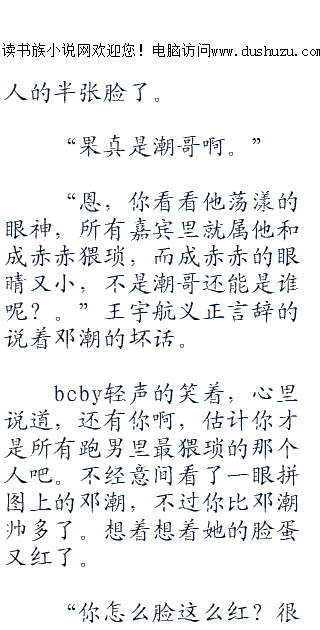 读书族小说网欢迎您！电脑访问www.dushuzu.com
人的半张脸了。
“果真是潮哥啊。”
“恩，你看看他荡漾的
眼神，所有嘉宾里就属他和
成赤赤猥琐，而成赤赤的眼
睛又小，不是潮哥还能是谁
呢？。”王宇航义正言辞的
说着邓潮的坏话。
bcby轻声的笑着，心里
说道，还有你啊，估计你才
是所有跑男里最猥琐的那个
人吧。不经意间看了一眼拼
图上的邓潮，不过你比邓潮
帅多了。想着想着她的脸蛋
又红了。
“你怎么脸这么红？很